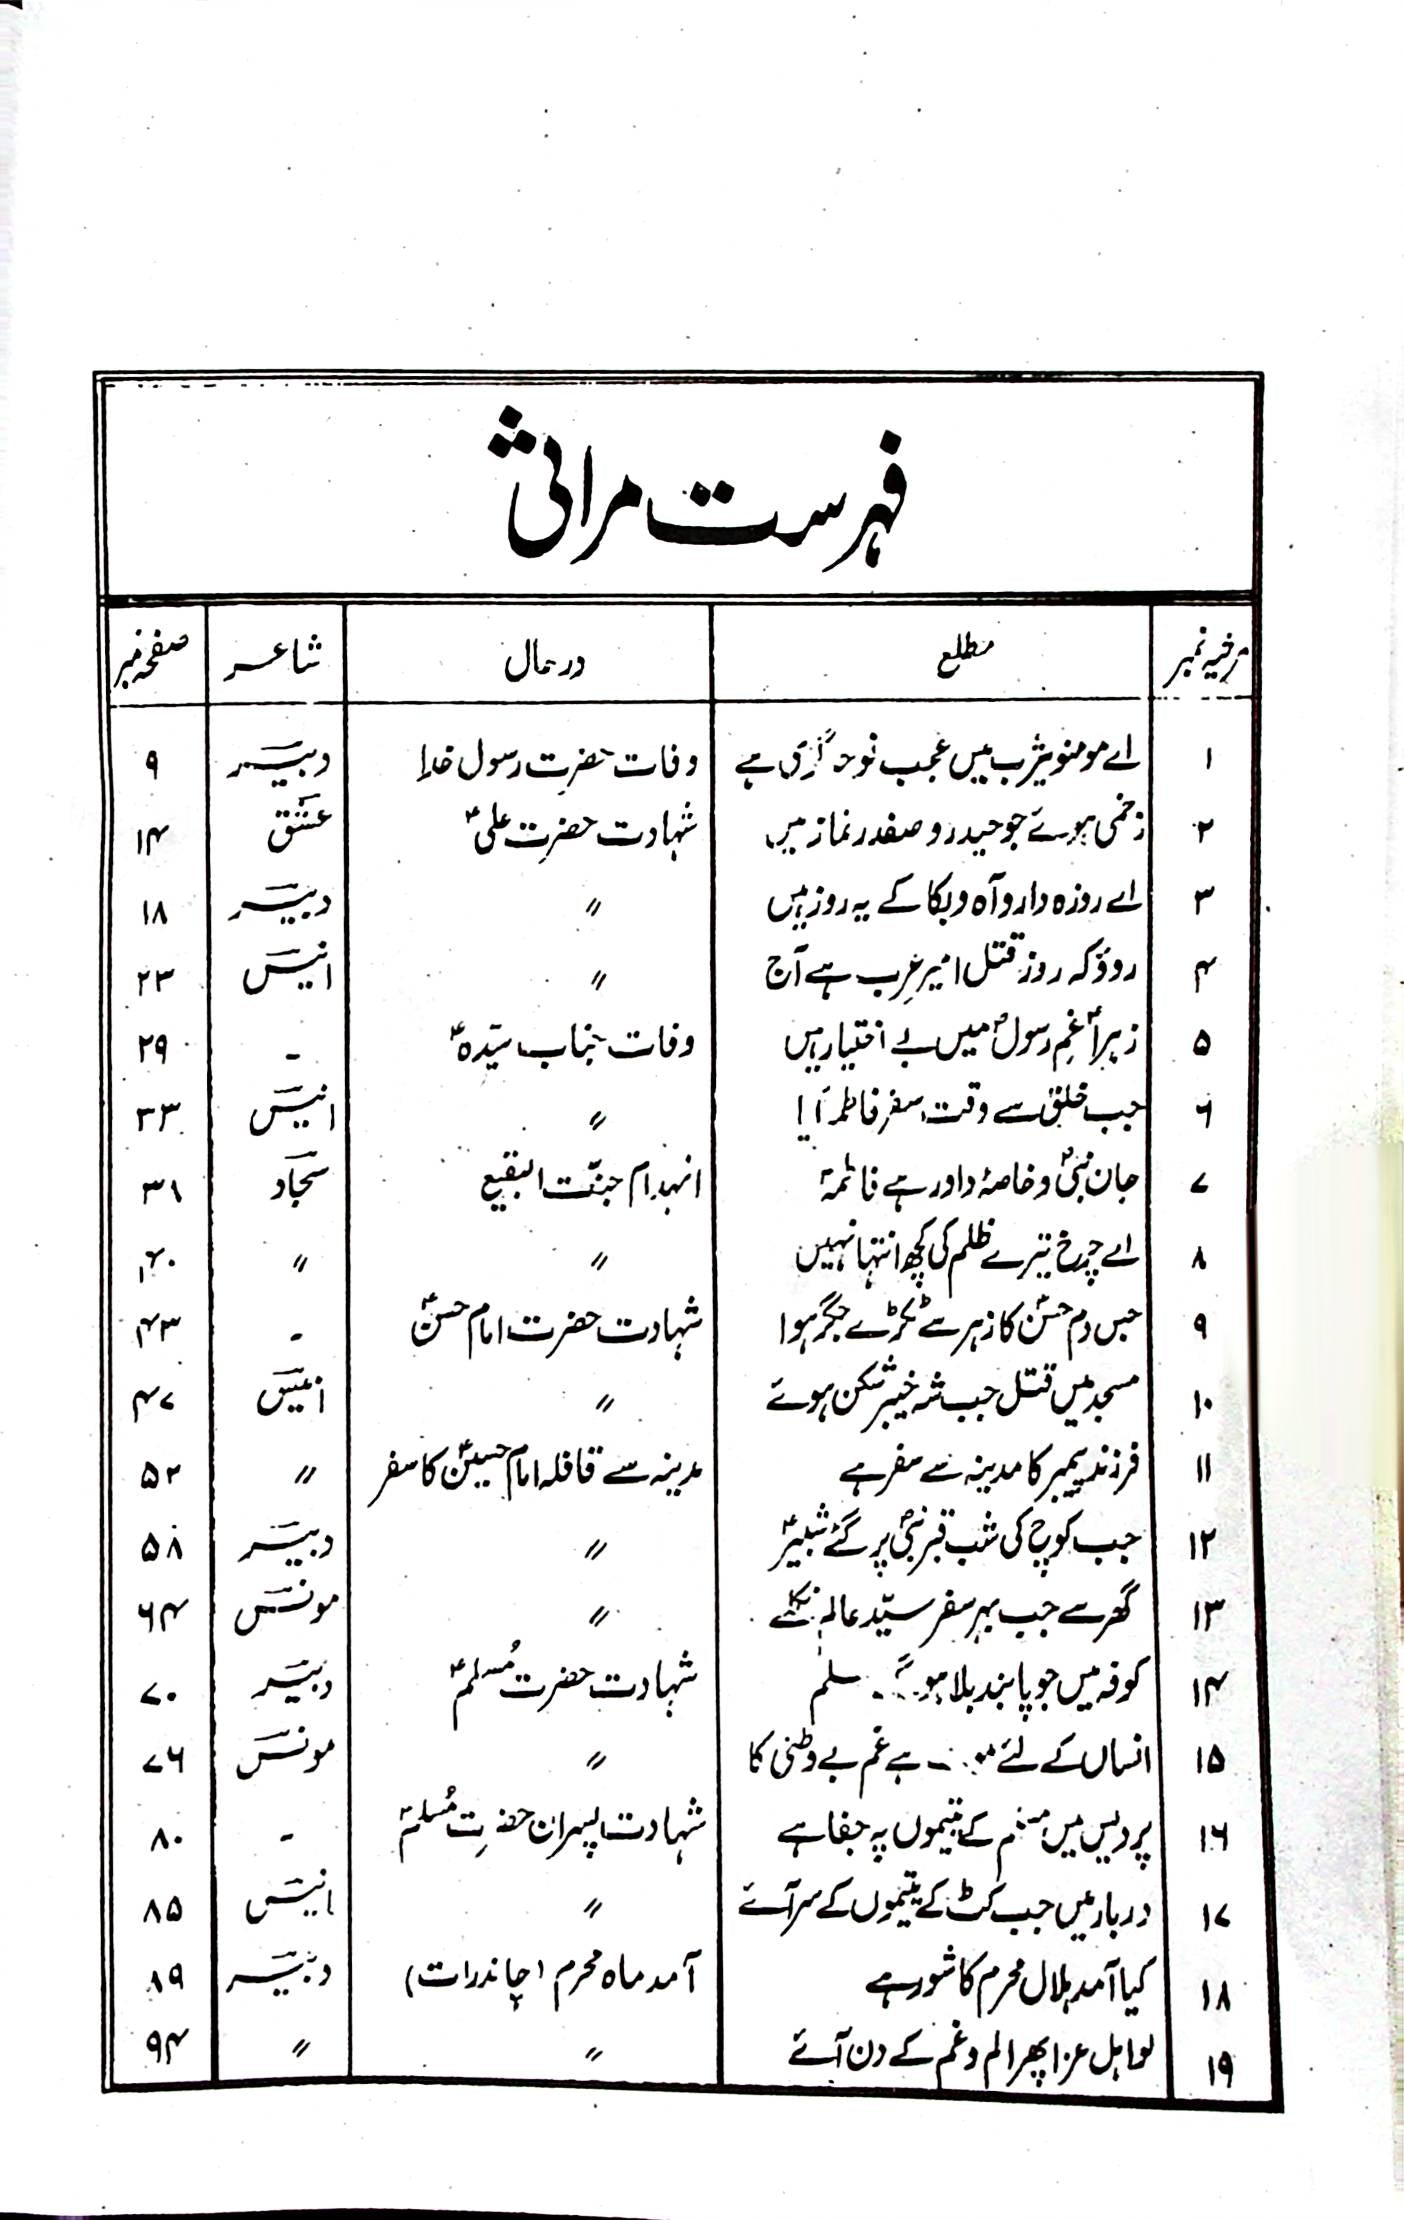 فہرست مراثی
مرثیہ نمبر مطلع در حال شاعر صفحہ نمبر
۱ اے مومنو یثرب میں عجب نوحہ گری ہے وفات حضرت رسول خدا دبیر ۹
۲ زخمی ہوئے جو حیدر و صفدر نماز میں شہادت حضرت علیؑ عشق ۱۴
۳ اے روزہ دارو آہ و بکا کے یہ روز ہیں 〃 دبیر ۱۸
۴ روؤ کہ روز قتل امیر عرب ہے آج 〃 انیس ۲۳
۵ زہراؑ غم رسولؐ میں بے اختیار ہیں وفات جناب سیّدہؑ - ۲۹
۶ جب خلق سے وقت سفر فاطمہؑ آیا 〃 انیس ۳۳
۷ جان نبیؐ و خاصۂ داور ہے فاطمہؑ انہدام جنّت البقیع سجاد ۳۶
۸ اے چرخ تیرے ظلم کی کچھ انتہا نہیں 〃 〃 ۴۰
۹ جس دم حسنؑ کا زہر سے ٹکڑے جگر ہوا شہادت حضرت امام حسنؑ - ۴۳
۱۰ مسجد میں قتل جب شہ خیبر شکن ہوئے 〃 انیس ۴۷
۱۱ فرزند پیمبر کا مدینہ سے سفر ہے مدینہ سے قافلہ امام حسینؑ کا سفر 〃 ۵۲
۱۲ جب کوچ کی شب قبر نبیؐ پر گئے شبیرؑ 〃 دبیر ۵۸
۱۳ گھر سے جب بہر سفر سیّد عالم نکلے 〃 مونس ۶۴
۱۴ کوفہ میں جو پابند بلا ہو شہادت حضرت مُسلمؑ دبیر ۷۰
۱۵ انساں کے لئے ہے غم بے وطنی کا 〃 مونس ۷۶
۱۶ پردیس میں مسلم کے یتیموں پہ جفا ہے شہادت پسران حضرت مُسلمؑ - ۸۰
۱۷ دربار میں جب کٹ کے یتیموں کے سر آئے 〃 انیس ۸۵
۱۸ کیا آمد ہلال محرم کا شور ہے آمد ماہ محرم (چاند رات) دبیر ۸۹
۱۹ لو اہل عزا پھر الم و غم کے دن آئے 〃 〃 ۹۴